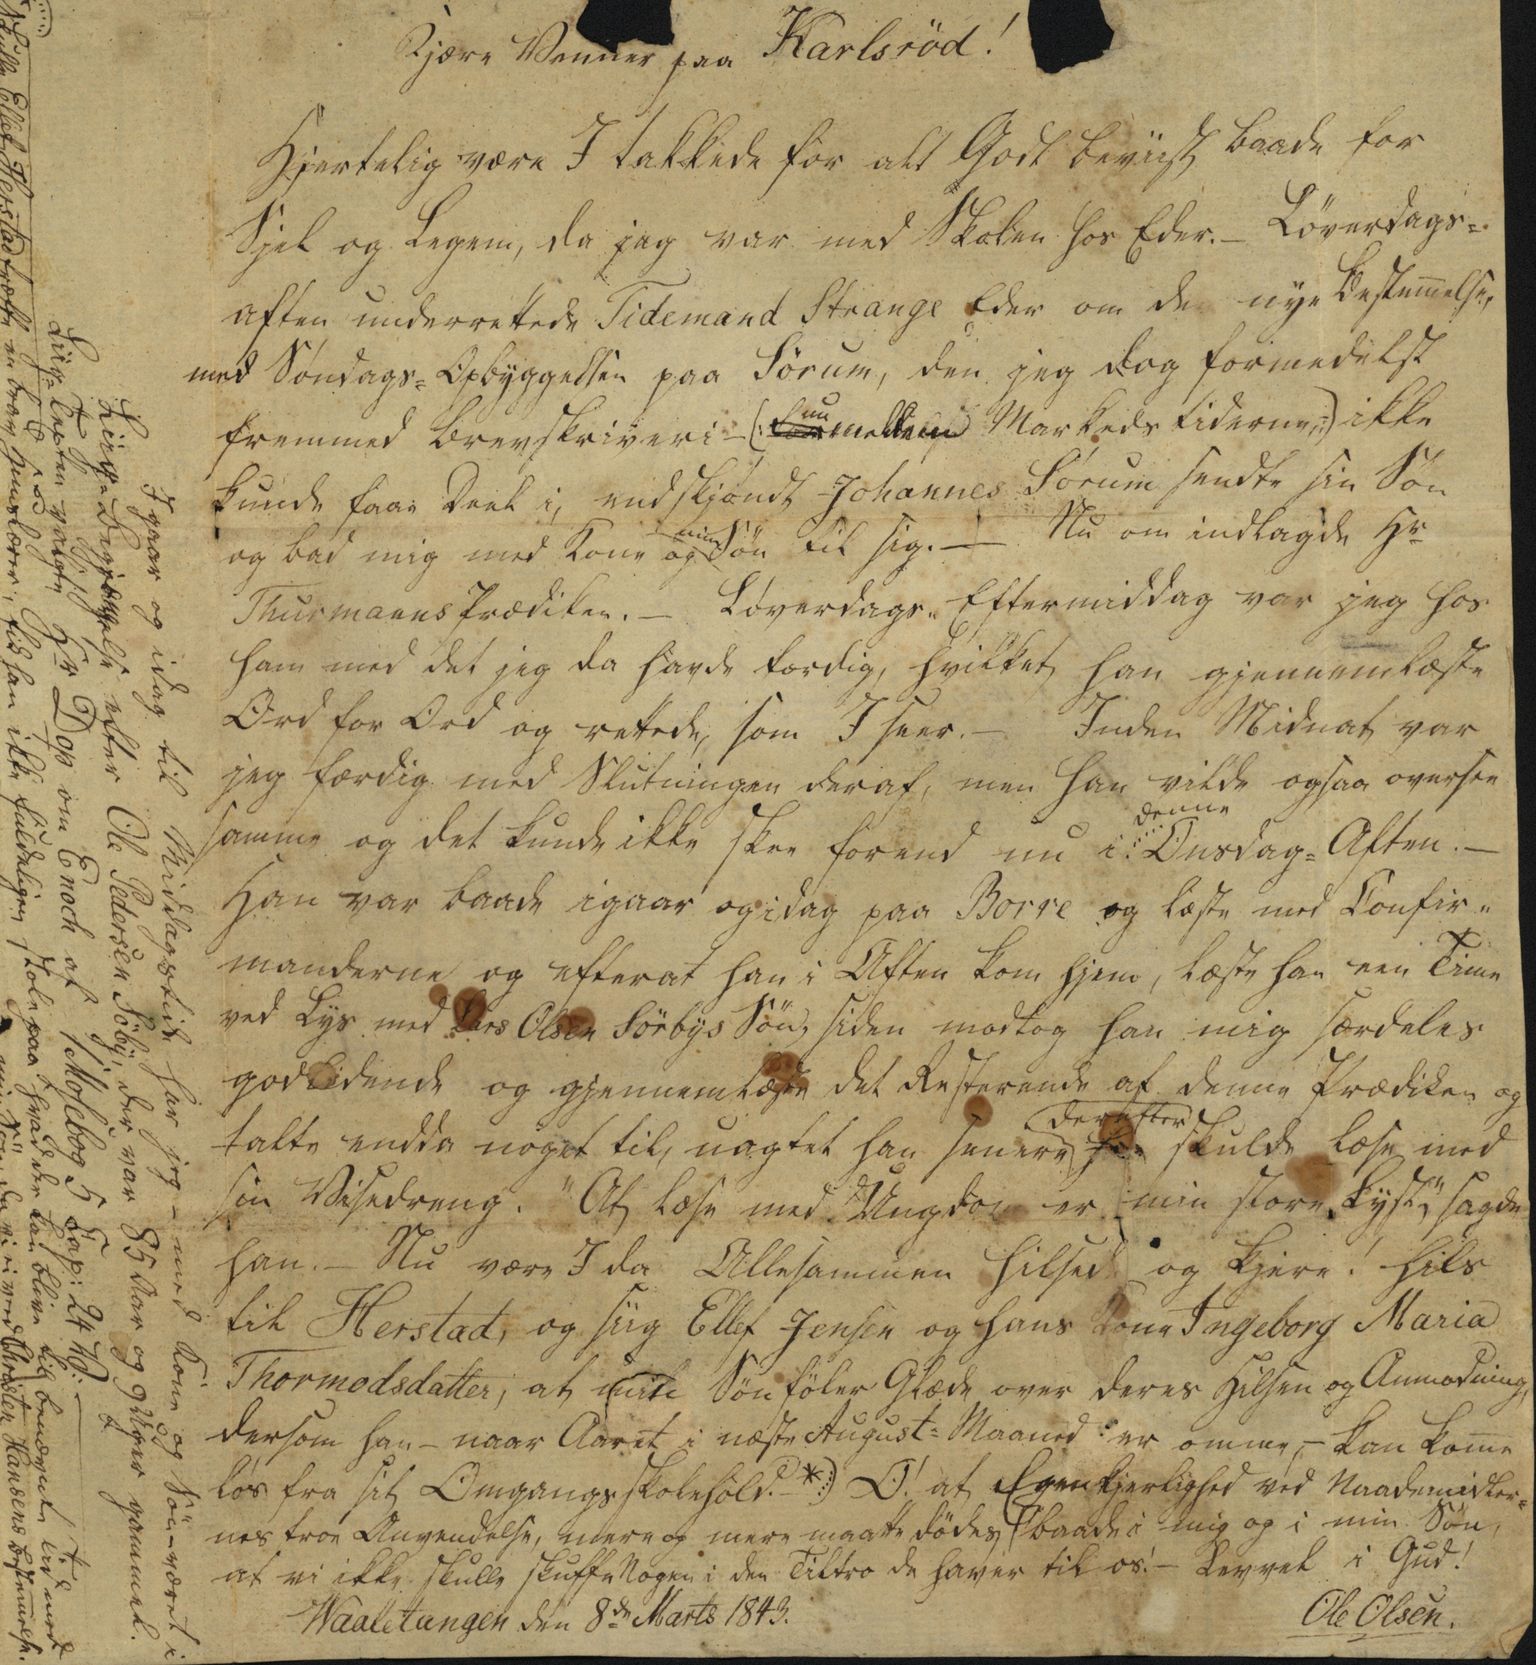 Kjære Venner paa Karlsröd!
Hjertelig være I takkede for alt Godt beviist baade for
Sjel og Legem, da jeg var med Skolen hos Eder. – Løverdags=
aften underrettede Tidemand Strange Eder om de nye Bestemmelser
med Søndags=Opbyggelsen paa Sörum, den jeg dog formedelst
fremmed Brevskriveri – (: nu mellem Markedstiderne :) ikke
kunde faae Deel i, endskjøndt Johannes Sørum sendte sin Søn
og bad mig med Kone og min Søn til sig. — Nu om indlagde Hr
Thurmanns Prædiken. – Løverdags=Eftermiddag var jeg hos
ham med det jeg da havde færdig, hvilket han gjennemlæste
Ord for Ord og rettede, som I seer. – Inden Midnat var
jeg færdig med Slutningen deraf, men han vilde ogsaa oversee
samme og det kunde ikke skee førend nu i denne Onsdag=Aften. –
Han var baade igaar og idag paa Borre og læste med Confir=
manderne og efterat han i Aften kom hjem, læste han een Time
ved Lys med Lars Olsen Sörbys Søn, siden modtog han mig særdeles
godlidende og gjennemlæste det Resterende af denne Prædiken og
talte endda noget til, uagtet han senere derefter skulde læse med
sin Visedreng. "At læse med Ungdom er min store Lyst", sagde
han. – Nu være I da Allesammen hilsed og kjere! hils
til Herstad, og siig Ellef Jensen og hans Kone Ingeborg Maria
Thormodsdatter, at min Søn føler Glæde over deres Hilsen og Anmodning,
dersom han – naar Aaret i næste August=Maaned er omme, – kan komme
løs fra sit Omgangsskolehold. *) O! at Egenkjerlighed ved Naademidler=
nes troe Anvendelse, mere og mere maatte dødes baade i mig og i min Søn,
at vi ikke skulle skuffe Nogen i den Tiltro de haver til os! – Levvel i Gud!
Waaletangen den 8de Marts 1843.
Ole Olsen.
Igaar og idag til Middagstid har jeg – med Kone og Søn – været i
Liig=Begjængelse efter Ole Pedersen Söby, der var 85 Aar og 9 Uger gammel.
Liig=texten valgte Hr Dop om Enoch af 1 Mosebog 5 Cap: 24 V: –
Ellef Herstad
en brav Huuslærer, tid han ikke fuldeligen stole paa hvad der kan blive til bemeldte Tid med
min Søn, da vi ei veed Christen Hansens Bestemmelse.